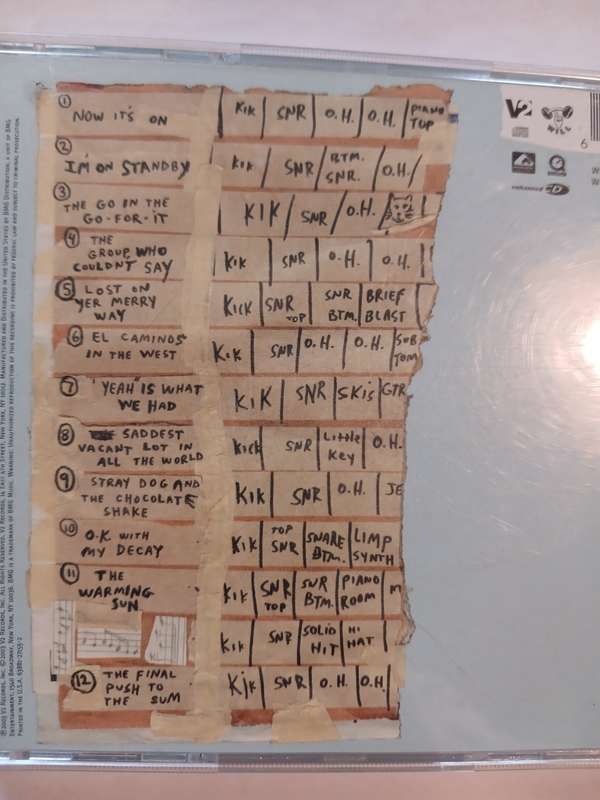 ① NOW IT'S ON KIK SNR O.H. O.H. PIANO TOP
② I'M ON STANDBY KIK SNR BTM. SNR. O.H.
③ THE GO IN THE GO-FOR-IT KIK SNR O.H.
④ THE GROUP WHO COULDN'T SAY KIK SNR O.H. O.H.
⑤ LOST ON YER MERRY WAY KICK SNR TOP SNR BTM. BRIEF BLAST
⑥ EL CAMINOS IN THE WEST KIK SNR O.H. O.H. SUB TOM
⑦ "YEAH" IS WHAT WE HAD KIK SNR SKIS GTR
⑧ SADDEST VACANT LOT IN ALL THE WORLD KICK SNR LITTLE KEY O.H.
⑨ STRAY DOG AND THE CHOCOLATE SHAKE KIK SNR O.H. JE
⑩ O.K. WITH MY DECAY KIK TOP SNR SNARE BTM. LIMP SYNTH
⑪ THE WARMING SUN KIK SNR TOP SNR BTM. PIANO ROOM M
KIK SNR SOLID HIT HI HAT
⑫ THE FINAL PUSH TO THE SUM KIK SNR O.H. O.H.
V2
6
W
W
enhanced CD
℗ 2003 V2 RECORDS, INC. © 2003 V2 RECORDS, INC. ALL RIGHTS RESERVED. V2 RECORDS, 14 EAST 4TH STREET, NEW YORK, NY 10012. MANUFACTURED AND DISTRIBUTED IN THE UNITED STATES BY BMG DISTRIBUTION, A UNIT OF BMG
ENTERTAINMENT, 1540 BROADWAY, NEW YORK, NY 10036. BMG IS A TRADEMARK OF BMG MUSIC. WARNING: UNAUTHORIZED REPRODUCTION OF THIS RECORDING IS PROHIBITED BY FEDERAL LAW AND SUBJECT TO CRIMINAL PROSECUTION.
PRINTED IN THE U.S.A. 63881-27155-2